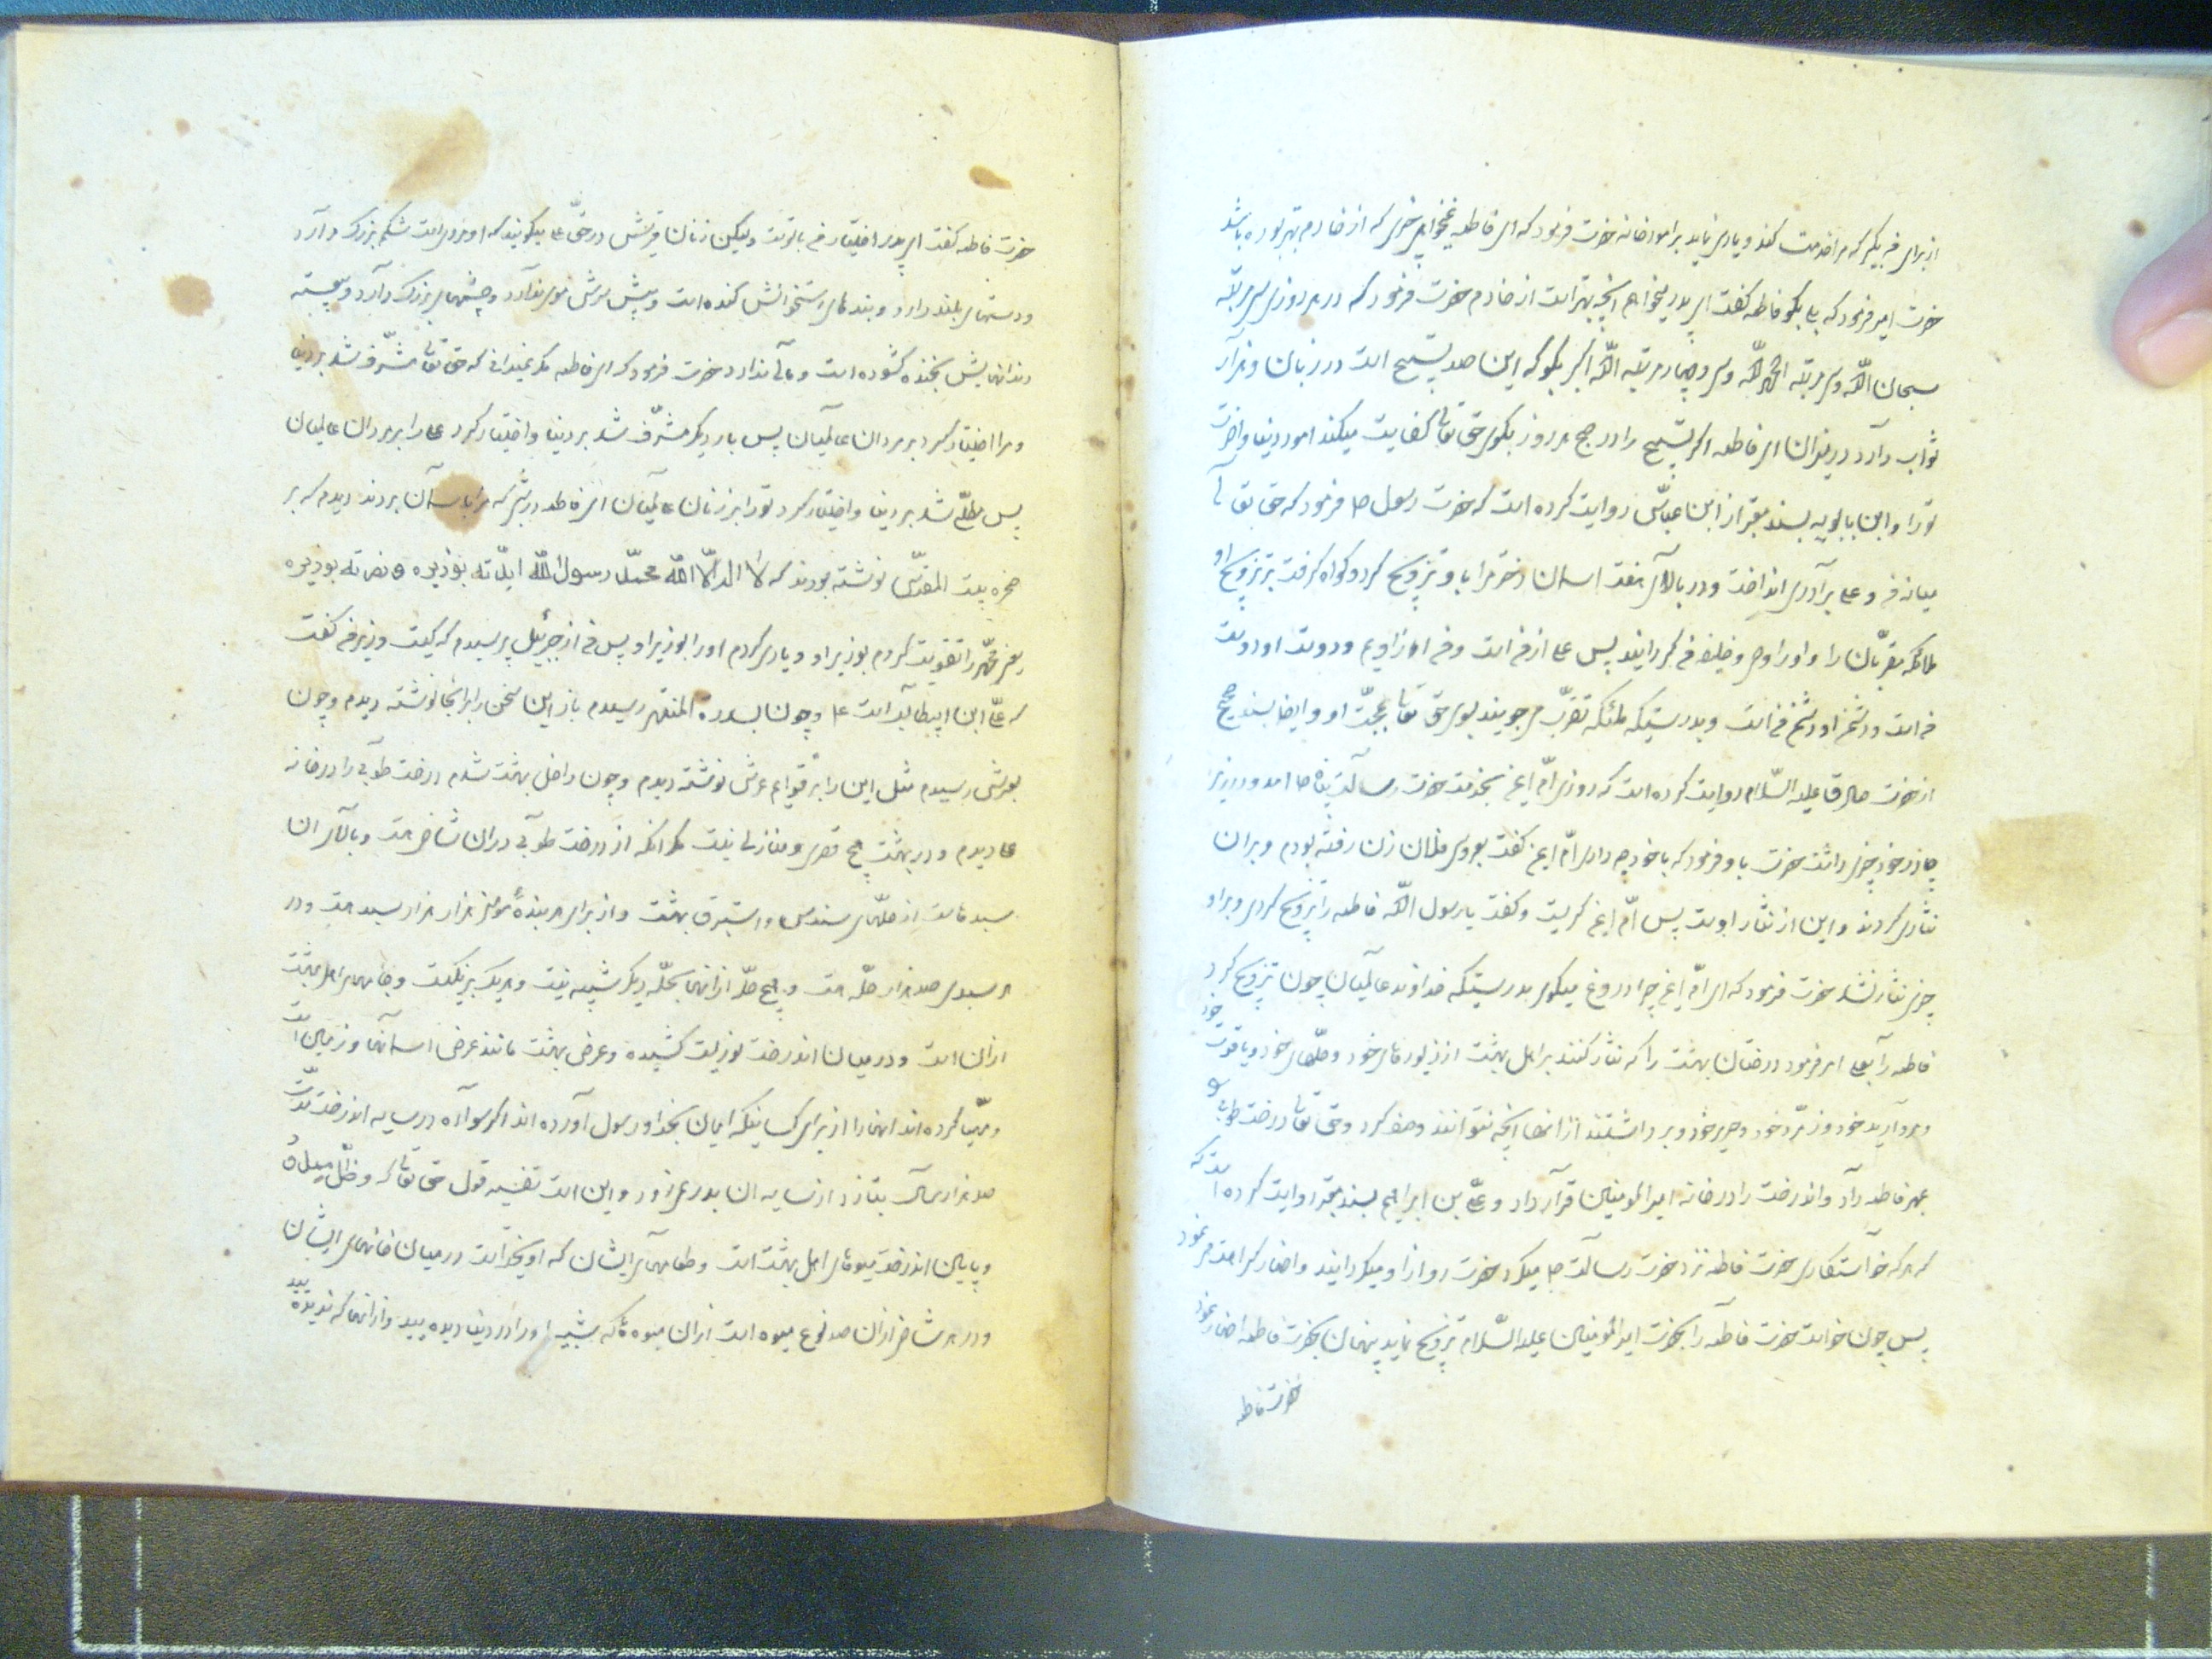 از برای من بگیر که مرا خدمت کند و یاری نماید بر امور خانه حضرت فرمود که ای فاطمه نمیخواهی چیزی که از خادم بهتر بوده باشد
حضرت امیر فرمود که بلی بگو فاطمه گفت ای پدر میخواهم آنچه بهتر است از خادم حضرت فرمود که در هر روزی سی مرتبه
سبحان الله و سی مرتبه الحمد لله و سی و چهار مرتبه الله اکبر بگو که این صد تسبیح است در زبان و هزار
ثواب دارد در میزان ای فاطمه اگر تسبیح را در صبح هر روز بگوی حق تعالی کفایت میکند امور دنیا و آخرت
ترا و ابن بابویه بسند معتبر از ابن عباس روایت کرده است که حضرت رسول ص فرمود که حق تعالی
میانه من و علی برادری انداخت و در بالای هفت اسمان دختر مرا باو تزویج کرد و گواه گرفت بر تزویج او
ملائکه مقربان را و او را وصی و خلیفه من گردانید پس علی از من است و من از اویم و دوست او دوست
من است و دشمن او دشمن من است و بدرستیکه ملئکه تقرب می جویند بسوی حق تعالی بمحبت او و ایضا بسند صحیح
از حضرت صادق علیه السلام روایت کرده است که روزی ام ایمن بخدمت حضرت رسالت پناه ص امد و در زیر
چادر خود چیزی داشت حضرت باو فرمود که با خود چه داری ام ایمن گفت بعروسی فلان زن رفته بودم و بران
نثاری کردند و این از نثار اوست پس ام ایمن گریست و گفت یا رسول الله فاطمه را تزویج کردی و بر او
چیزی نثار نشد حضرت فرمود که ای ام ایمن چرا دروغ میگوی بدرستیکه خداوند عالمیان چون تزویج کرد
فاطمه را بعلی امر فرمود درختان بهشت را که نثار کنند بر اهل بهشت از زیورهای خود و حلهای خود و یاقوت خود
و مروارید خود و زمرد خود و حریر خود و برداشتند از انها آنچه نتوانند وصف کرد و حق تعالی درخت طوبی را
بمهر فاطمه داد و اندرخت را در خانه امیر المومنین قرار داد و علی بن ابراهیم بسند معتبر روایت کرده است که
که هر که خواستگاری حضرت فاطمه نزد حضرت رسالت ص میکرد حضرت رو از او میگردانید و اظهار کراهت می نمود
پس چون خواست حضرت فاطمه را بحضرت امیر المومنین علیه السلام تزویج نماید پنهان بحضرت فاطمه اظهار نمود
حضرت فاطمه
حضرت فاطمه گفت ای پدر اختیار من با توست ولیکن زنان قریش در حق علی میگویند که او مردی است شکم بزرگ دارد
و دستهای بلند دارد و بندهای استخوانش کنده است و پیش سرش موی ندارد و چشمهای بزرگ دارد و پیوسته
دندانهایش بخنده گشوده است و مالی ندارد حضرت فرمود که ای فاطمه مگر نمیدانی که حق تعالی مشرف شد بر دنیا
و مرا اختیار کرد بر مردان عالمیان پس بار دیگر مشرف شد بر دنیا و اختیار کرد علی را بر مردان عالمیان
پس مطلع شد بر دنیا و اختیار کرد تو را بر زنان عالمیان ای فاطمه در شبی که مرا باسمان بردند دیدم که بر
صخره بیت المقدس نوشته بودند که لا اله الا الله محمد رسول الله ایدته بوزیره و نصرته بوزیره
یعنی محمد را تقویت کردم بوزیر او و یاری کردم او را بوزیر او پس من از جبرئیل پرسیدم که کیست وزیر من گفت
که علی ابن ابیطالب است ع و چون بسدرة المنتهی رسیدم باز این سخن را در انجا نوشته دیدم و چون
بعرش رسیدم مثل این را بر قوایم عرش نوشته دیدم و چون داخل بهشت شدم درخت طوبی را در خانه
علی دیدم و در بهشت هیچ قصری و منزلی نیست مگر انکه از درخت طوبی در ان شاخی هست و بالای ان
سبدهاست از حلهای سندس و استبرق بهشت و از برای هر بندهٔ مومن هزار هزار سبد هست و در
هر سبدی صد هزار حله هست و هیچ حله از انها بحله دیگر شبیه نیست و هر یک برنگیست و جامهای اهل بهشت
از ان است و در میان اندرخت نوریست کشیده و عرض بهشت مانند عرض اسمانها و زمین است
و مهیا کرده اند انها را از برای کسانیکه ایمان بخدا و رسول آورده اند اگر سواره در سایه اندرخت مدت
صد هزار سال بتازد از سایه ان بدر نمیرود و این است تفسیر قول حق تعالی که و ظل ممدود
و پایین اندرخت میوهای اهل بهشت است و طعامهای ایشان که اویخته است در میان خانهای ایشان
و در هر شاخ از ان صد نوع میوه است از ان میوها که شبیه او را در دنیا دیده‌ایید و از انها که ندیده‌ایید